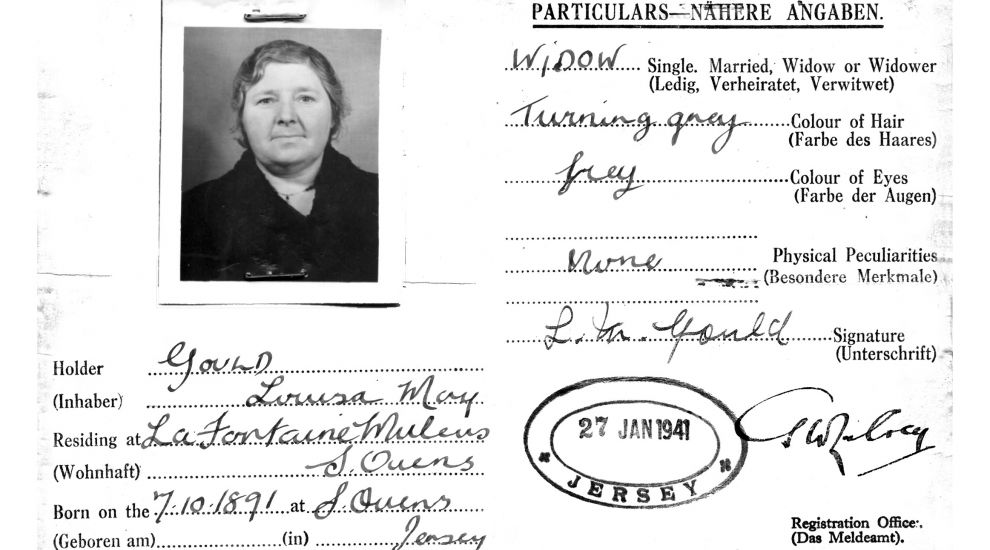 Holder GOULD
(Inhaber) Louisa May
Residing at La Fontaine Mileus
(Wohnhaft) S. Ouens
Born on the 7.10.1891 at S. Ouens
(Geboren am) (in) Jersey
PARTICULARS—NÄHERE ANGABEN.
WiDOW Single. Married, Widow or Widower
(Ledig, Verheiratet, Verwitwet)
Turning grey Colour of Hair
(Farbe des Haares)
Grey Colour of Eyes
(Farbe der Augen)
None Physical Peculiarities
(Besondere Merkmale)
L. M. Gould Signature
(Unterschrift)
27 JAN 1941
JERSEY
Registration Officer.
(Das Meldeamt).